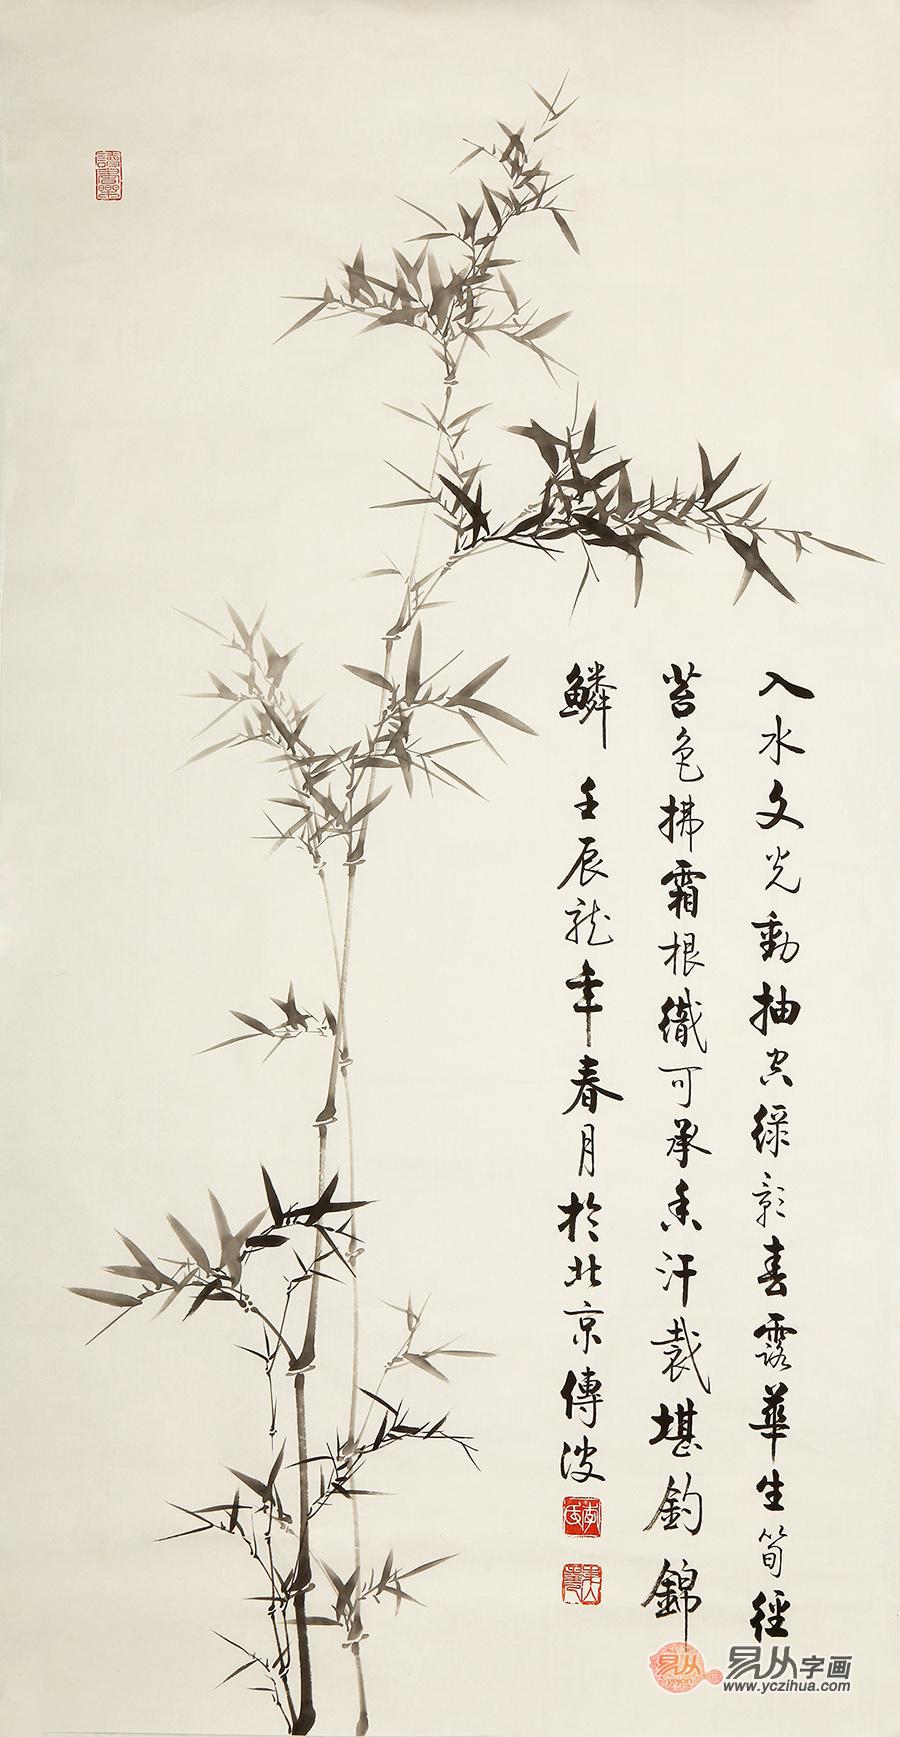 讀書樂
入水文光動抽空綠影春露華生筍徑
苔色拂霜根織可承香汗裁堪釣錦
鱗 壬辰龍年春月於北京傳波
李氏
易从
易从字画
www.yczihua.com